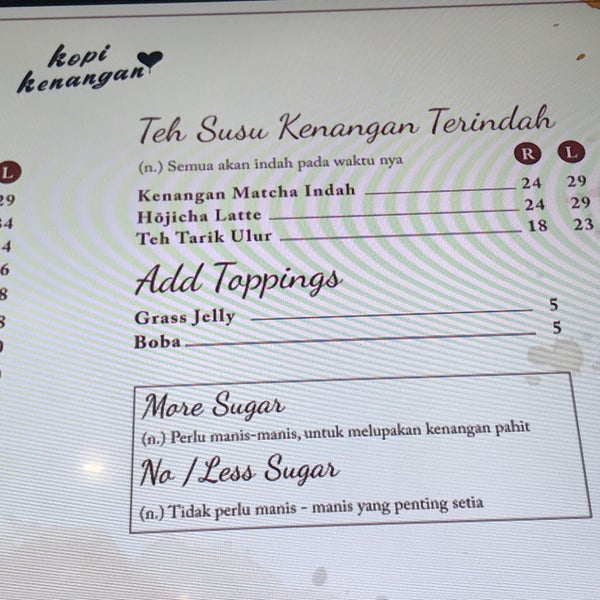 kopi
kenangan
Teh Susu Kenangan Terindah
(n.) Semua akan indah pada waktu nya
R L
Kenangan Matcha Indah 24 29
Hōjicha Latte 24 29
Teh Tarik Ulur 18 23
Add Toppings
Grass Jelly 5
Boba 5
More Sugar
(n.) Perlu manis-manis, untuk melupakan kenangan pahit
No / Less Sugar
(n.) Tidak perlu manis - manis yang penting setia
L
29